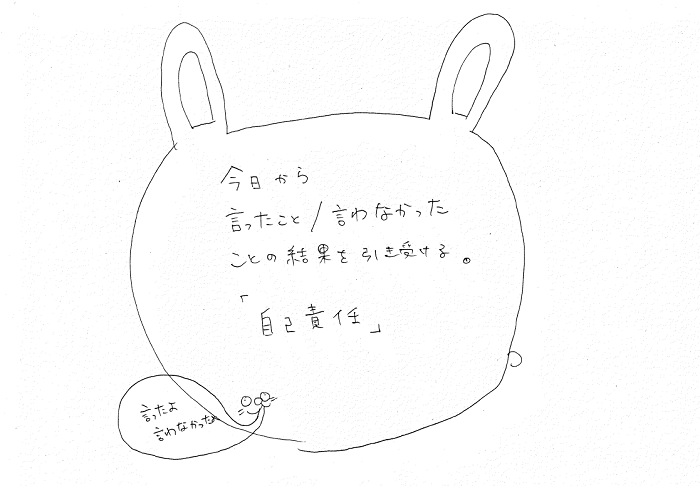 今日から
言ったこと/言わなかった
ことの結果を引き受ける。
「自己責任」
言ったよ
言わなかったよ